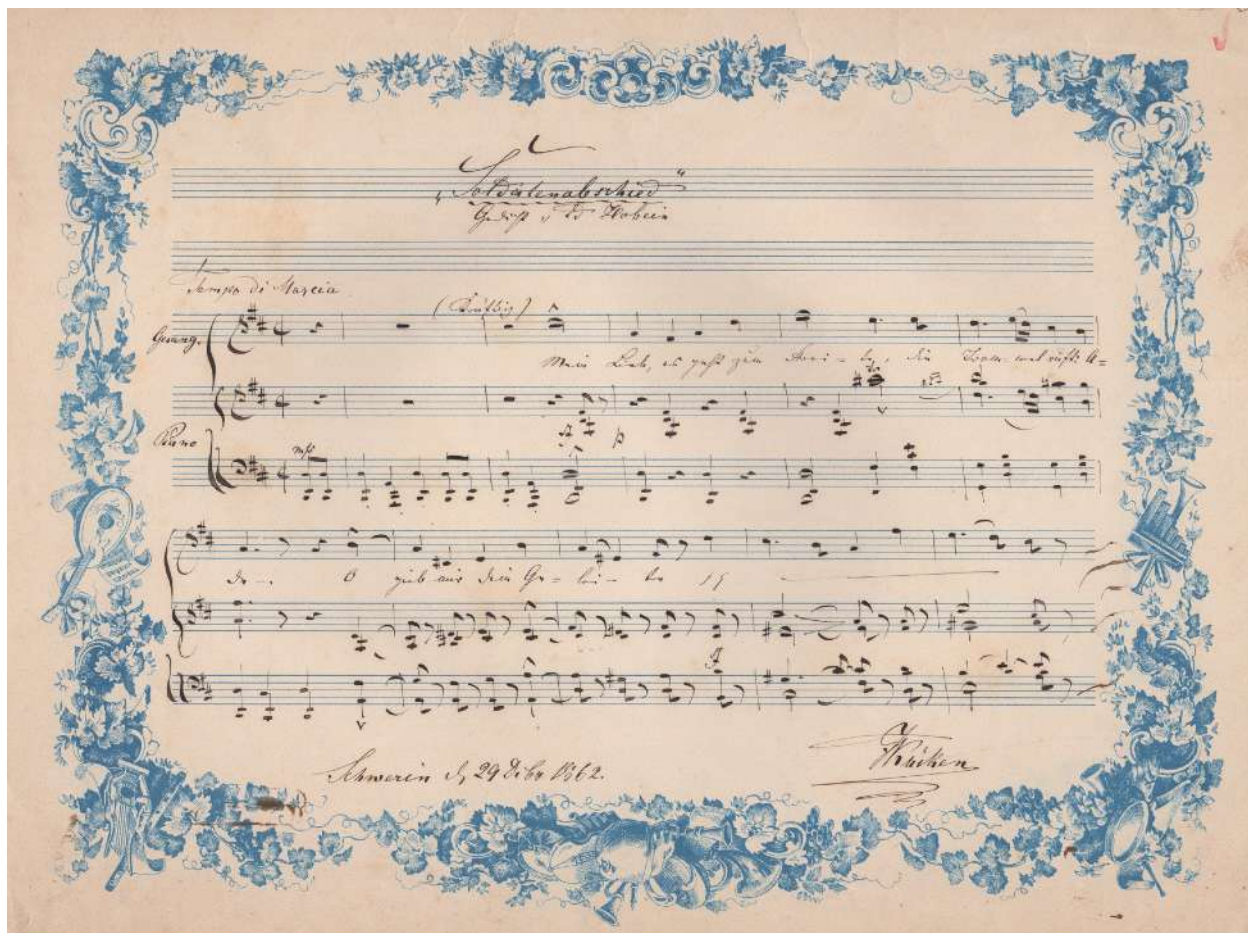 „Soldatenabschied“
Gedicht v Ed Hobein
Tempo di Marcia
(Kräftig)
Gesang.
Mein Lieb, es geht zum Strei-te, die Trommel ruft's
Piano
mf
p
O gieb mir dein Ge-lei-te
Schwerin d. 29 Dibr 1862.
FKücken